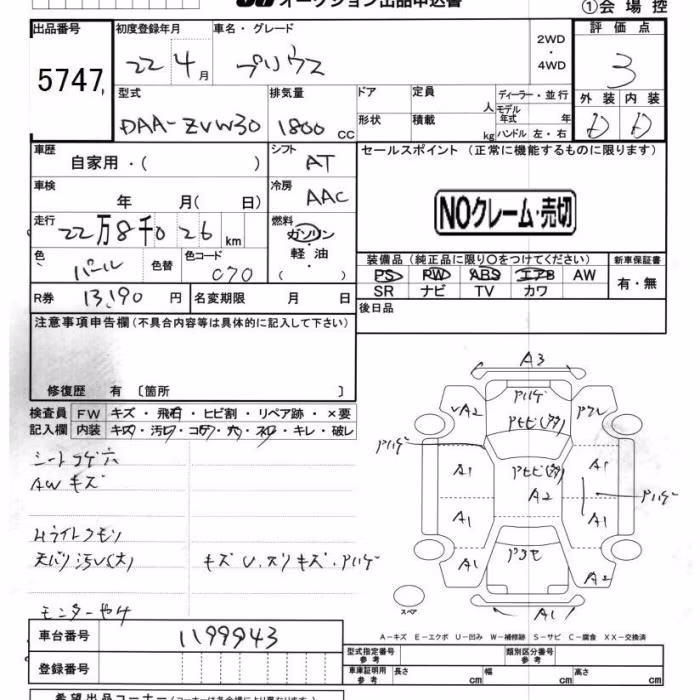 オークション出品申込書
①会場控
出品番号
5747
初度登録年月
22 4月
車名・グレード
プリウス
2WD
・
4WD
評価点
3
外装 内装
D D
型式
DAA-ZVW30
排気量
1800 cc
ドア
形状
定員
人
積載
kg
ディーラー・並行
モデル年式 年
ハンドル 左・右
車歴
自家用・( )
シフト
AT
セールスポイント (正常に機能するものに限ります)
NOクレーム・売切
車検
年 月( 日)
冷房
AAC
走行
22万8千026km
燃料
ガソリン
軽油
( )
色
パール
色替
色コード
070
装備品 (純正品に限り○をつけてください)
PS PW ABS エアB AW
SR ナビ TV カワ
新車保証書
有・無
R券 13,190円
名変期限 月 日
後日品
注意事項申告欄 (不具合内容等は具体的に記入して下さい)
修復歴 有 〔箇所 〕
検査員記入欄
FW キズ・飛石・ヒビ割・リペア跡・×要
内装 キズ・汚レ・コゲ・穴・スレ・キレ・破レ
シートコゲ穴
AWキズ
Hライトクモリ
天バリ汚レ(大)
キズU.スリキズ.Pハゲ
モニターヤケ
A3
Pハゲ
Pヒビ(多)
VA2
Pハゲ
A1
A1
A1
Pヒビ(多)
A2
A1
A1
Pハゲ
A2
A1
スペア
A-キズ E-エクボ U-凹み W-補修跡 S-サビ C-腐食 XX-交換済
車台番号
1199943
登録番号
型式指定番号 参考
類別区分番号 参考
車庫証明用 参考
長さ cm
幅 cm
高さ cm
希望出品コーナー